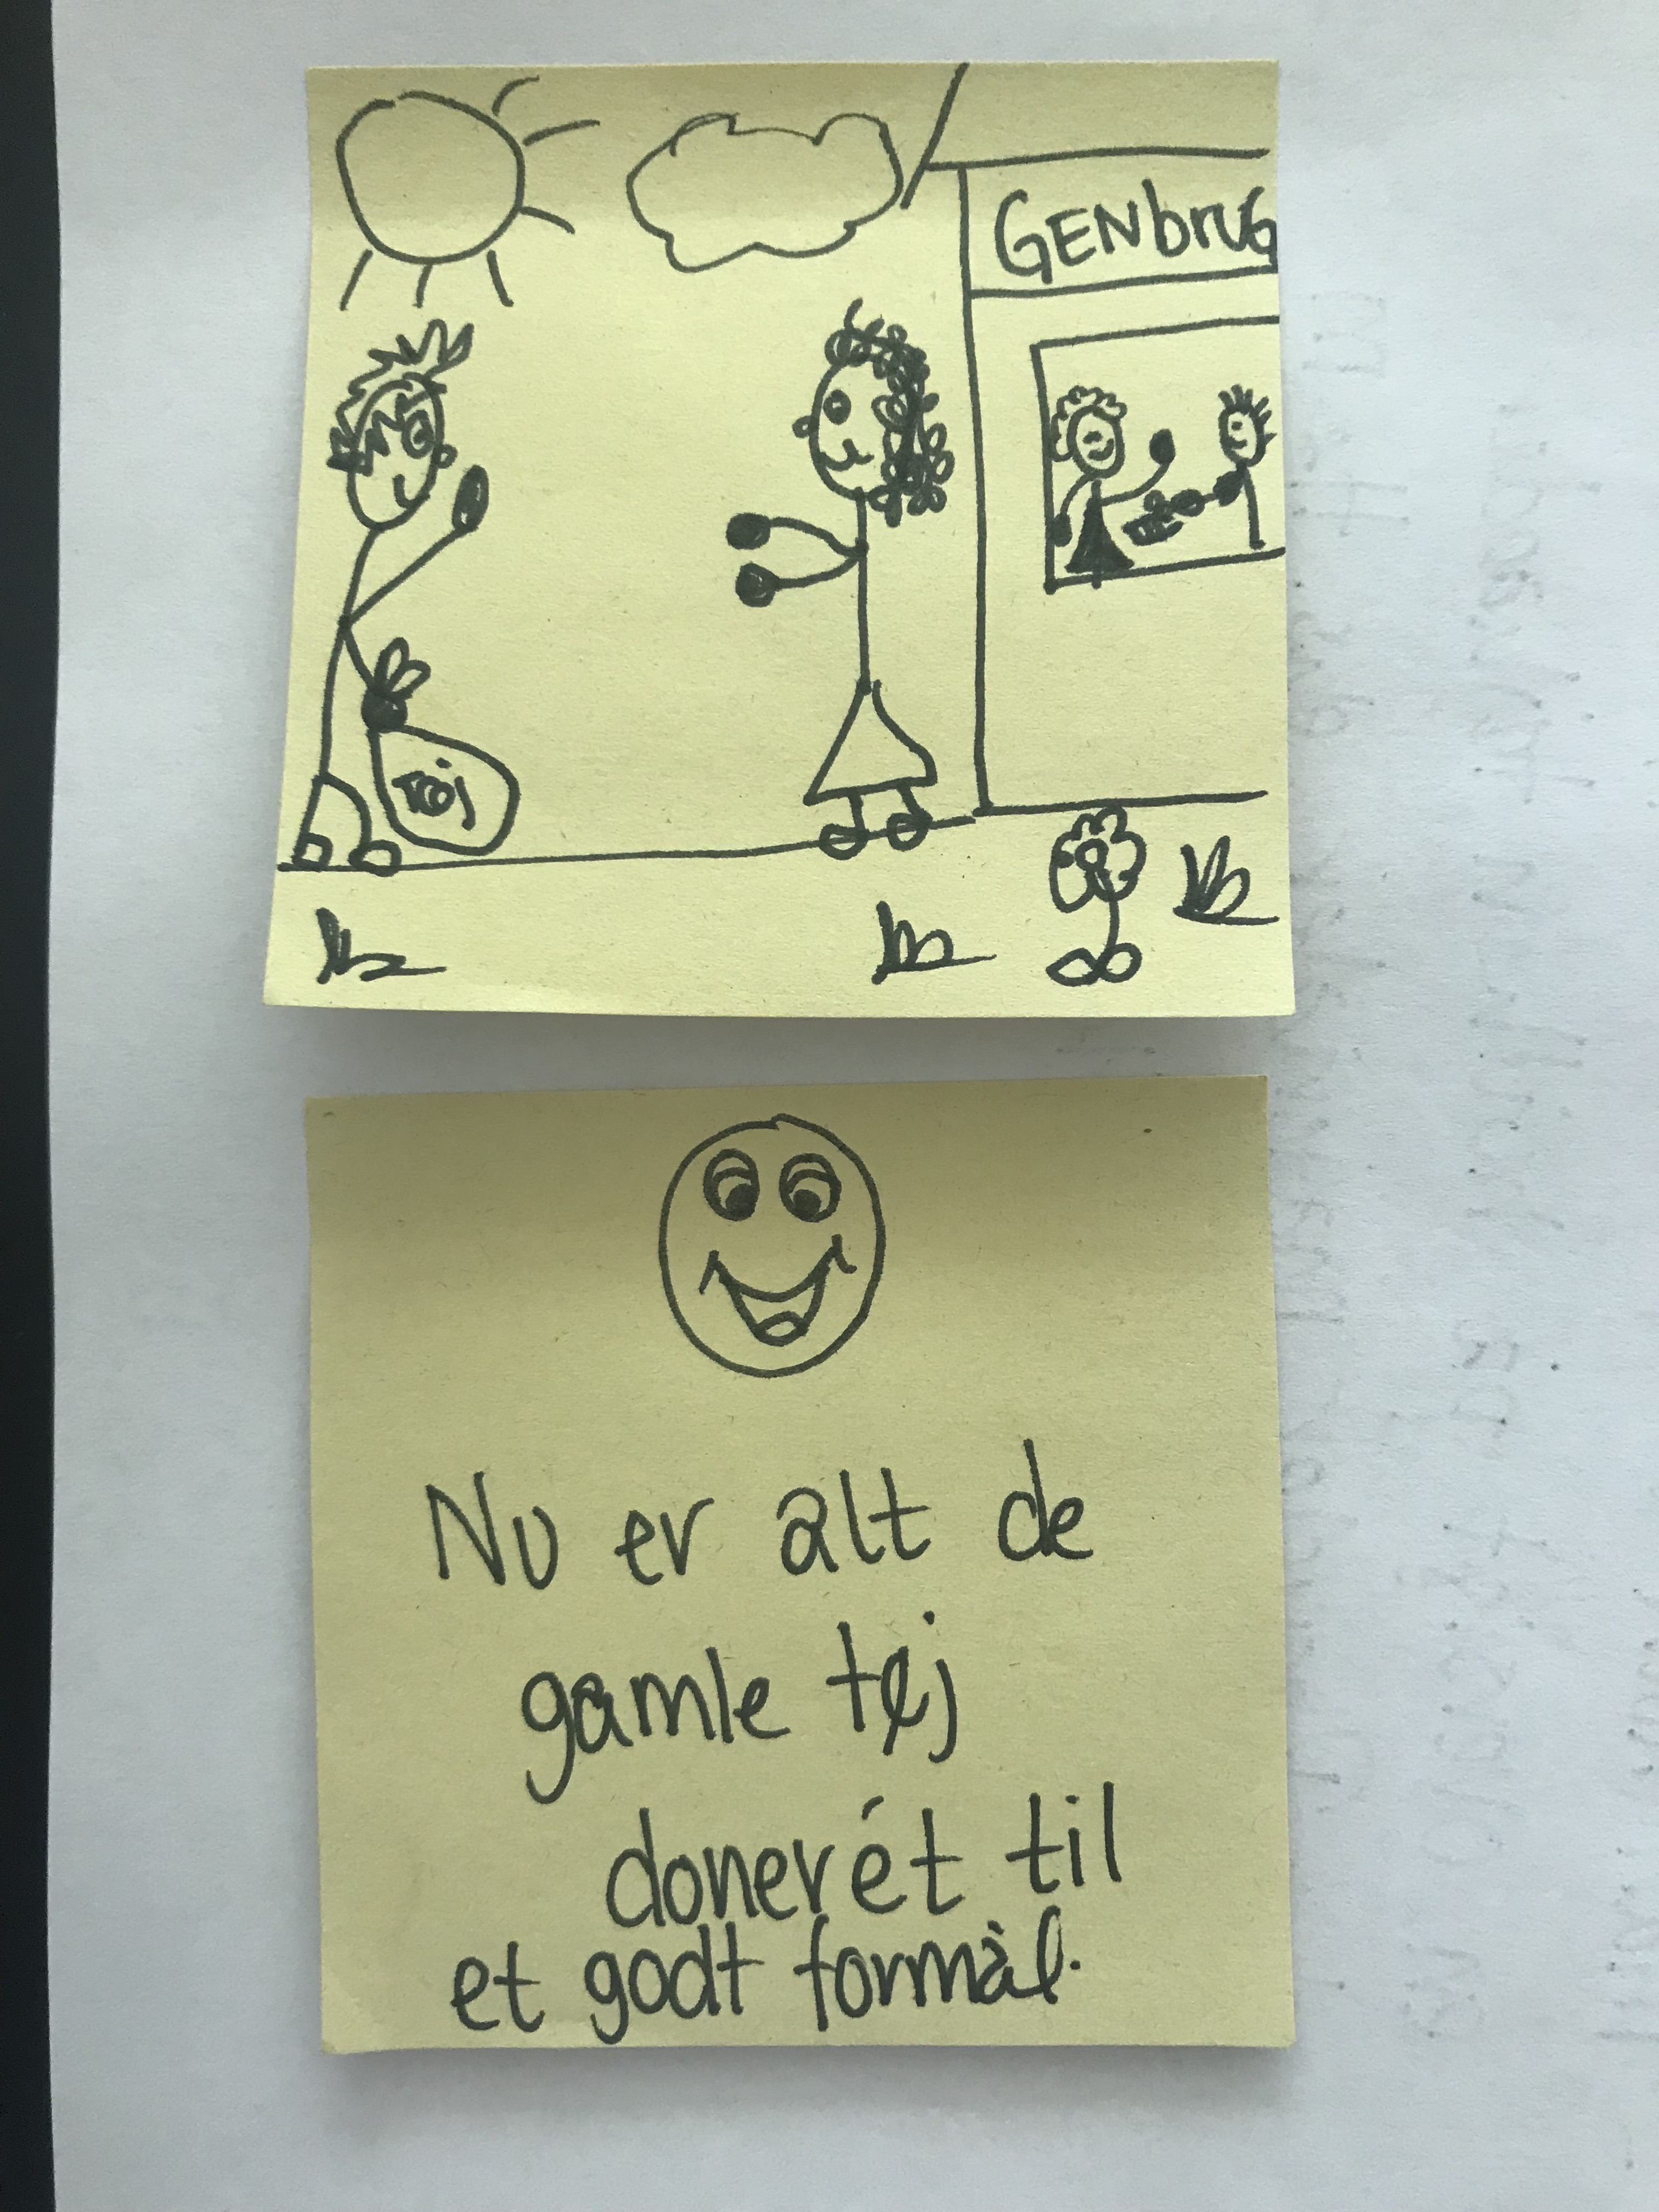 GENbrug
Tøj
Nu er alt de
gamle tøj
doneret til
et godt formål.